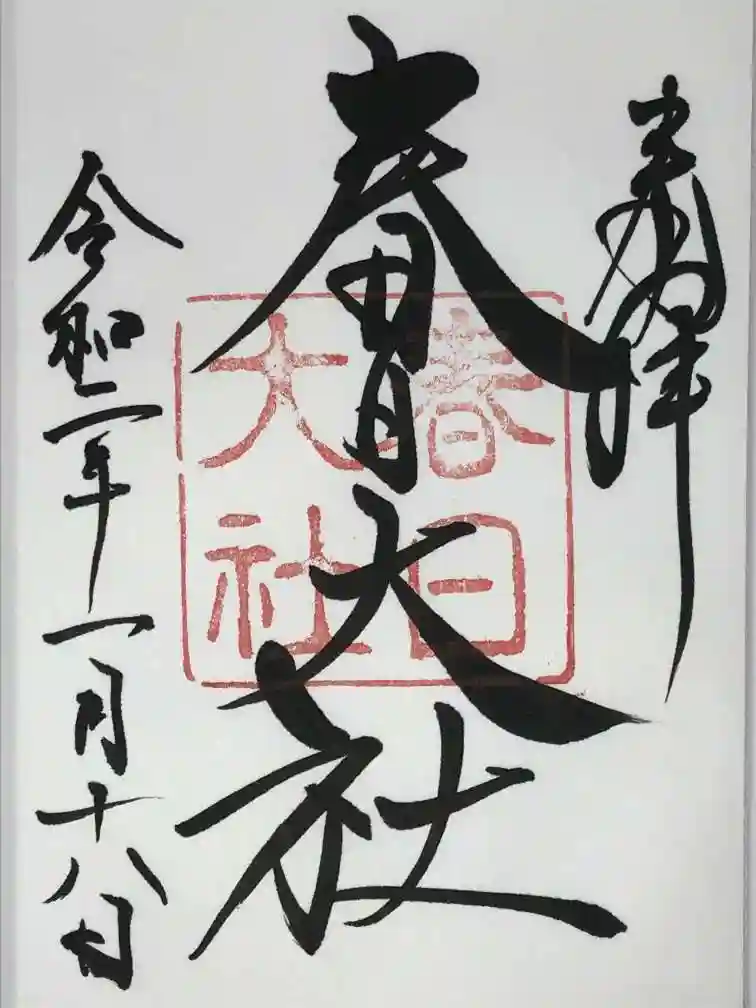 奉拝
春日大社
春日
大社
令和二年一月十八日